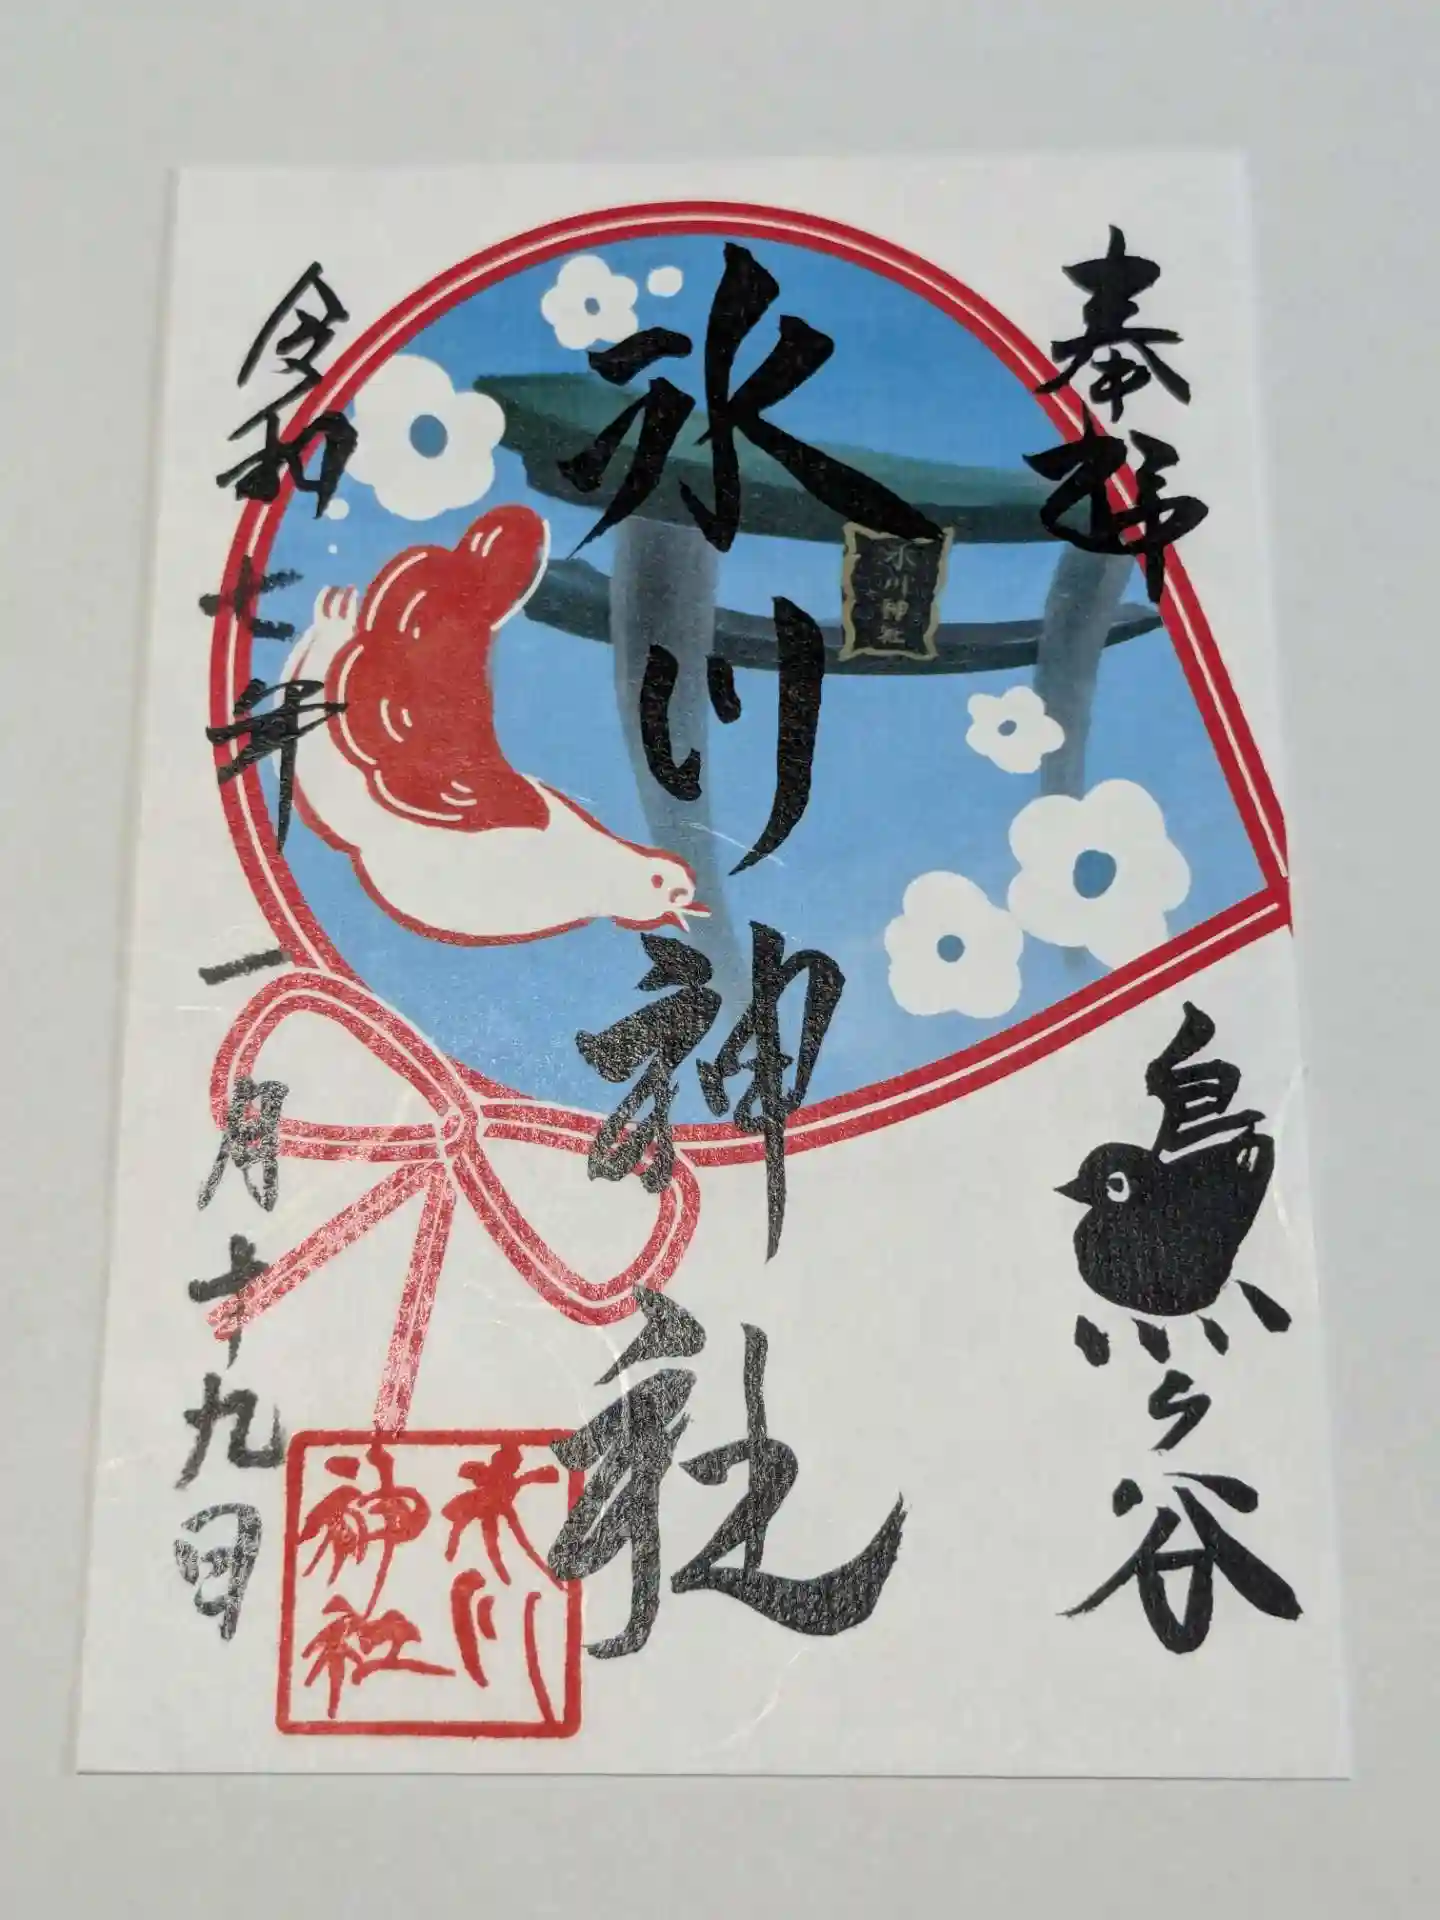 奉拝
烏ヶ谷
氷川神社
氷川神社
令和七年一月十九日
氷川
神社